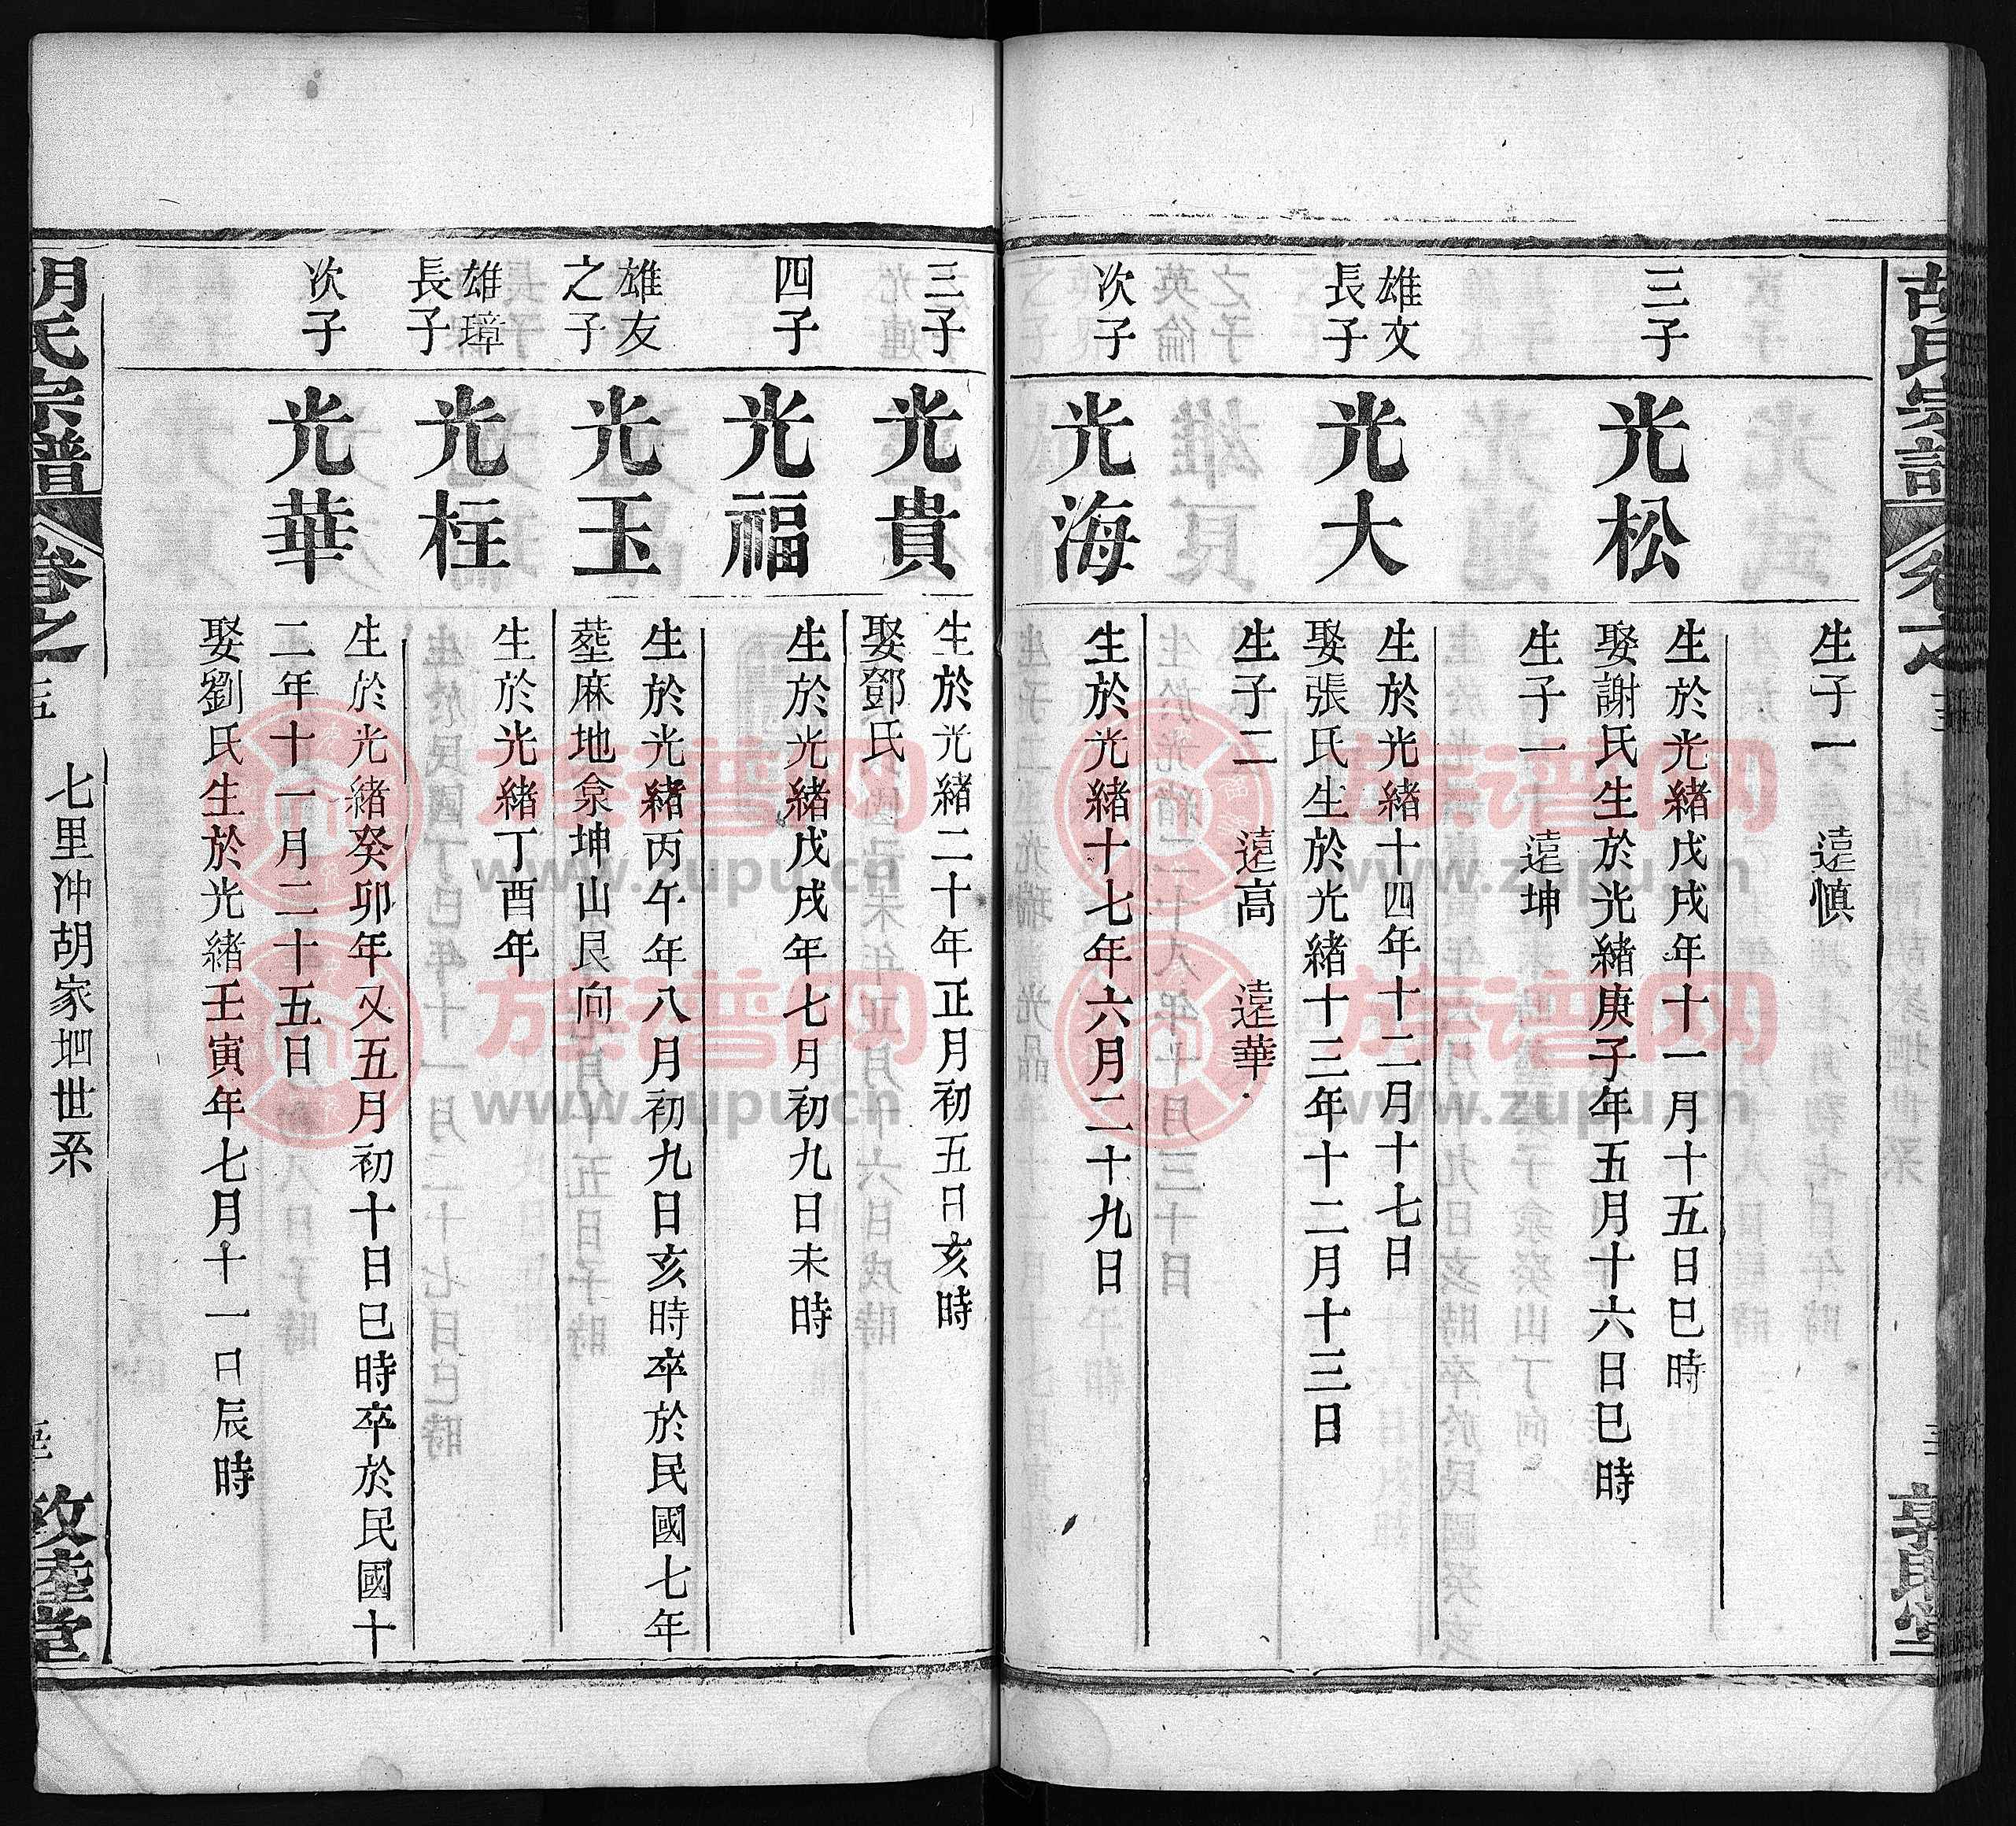 胡氏宗譜
生子一 遠慎
三子
光松
生於光緒戊戌年十一月十五日巳時
娶謝氏生於光緒庚子年五月十六日巳時
生子一 遠坤
雄文
長子
光大
生於光緒十四年十二月十七日
娶張氏生於光緒十三年十二月十三日
生子二 遠高 遠華
次子
光海
生於光緒十七年六月二十九日
三子
光貴
生於光緒二十年正月初五日亥時
娶鄧氏
四子
光福
生於光緒戊戌年七月初九日未時
雄友
之子
光玉
生於光緒丙午年八月初九日亥時卒於民國七年
塟麻地佘坤山艮向
雄璋
長子
光柱
生於光緒丁酉年
次子
光華
生於光緒癸卯年又五月初十日巳時卒於民國十
二年十一月二十五日
娶劉氏生於光緒壬寅年七月十一日辰時
胡氏宗譜
卷之
七里冲胡家坦世系
敦睦堂
族谱网
www.zupu.cn
族谱网
www.zupu.cn
族谱网
www.zupu.cn
族谱网
www.zupu.cn